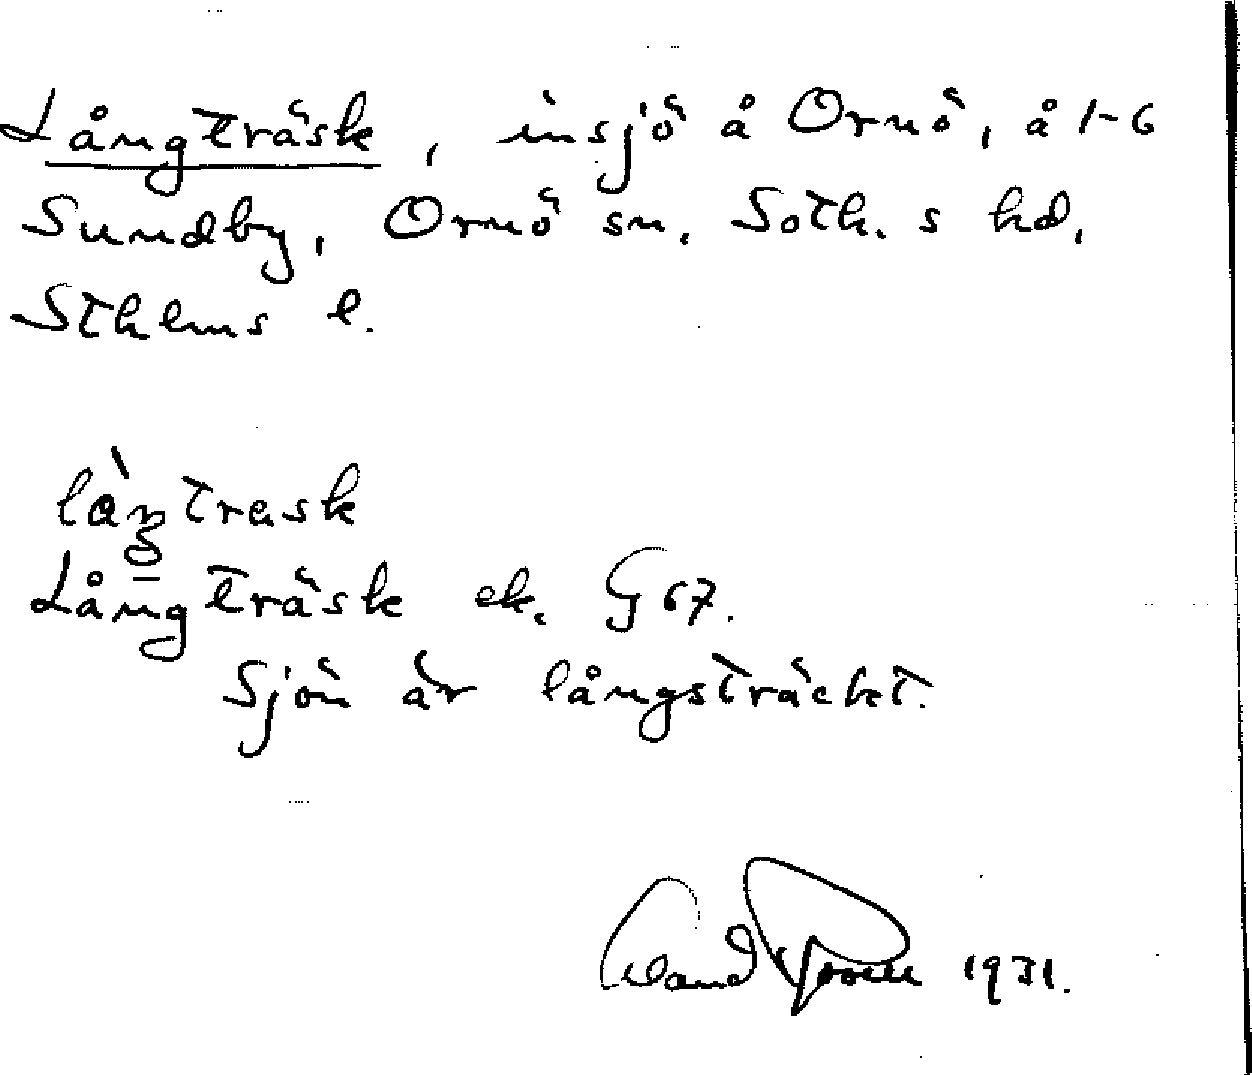 Långträsk, insjö å Ornö, å 1-6
Sundby, Ornö sn. Soth. s hd,
Sthlms l.
Långträsk ek. G 67.
Sjön är långsträckt.
1931.